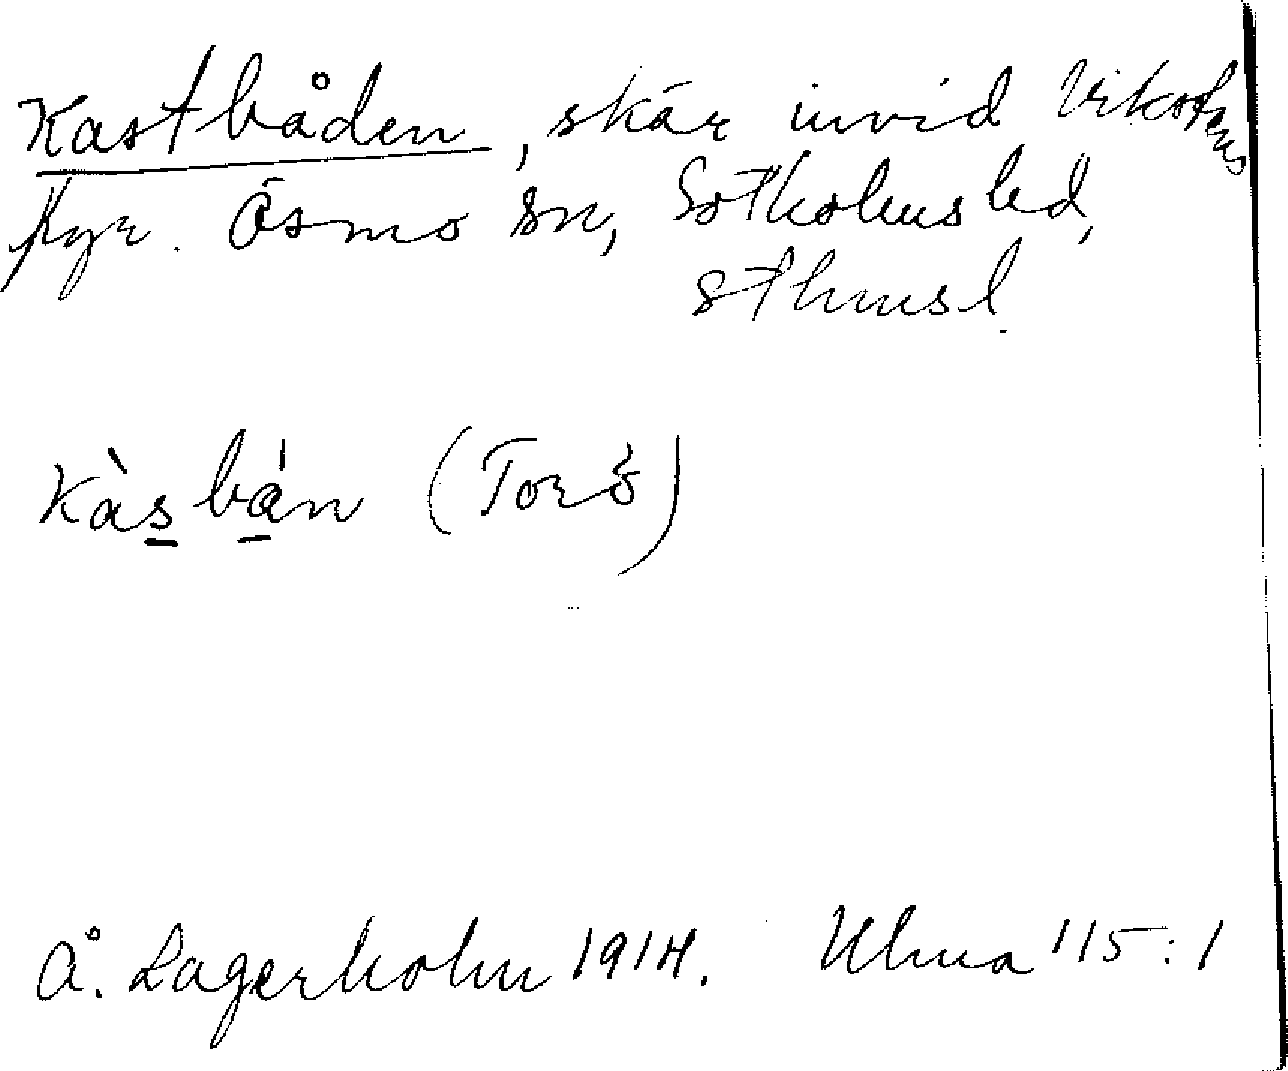 Kastbåden, skär invid Vikstens
fyr. Ösmo sn, Sotholms hd,
sthmsl.
Kàsbån (Torö)
Å. Lagerholm 1914. Ulma 115:1